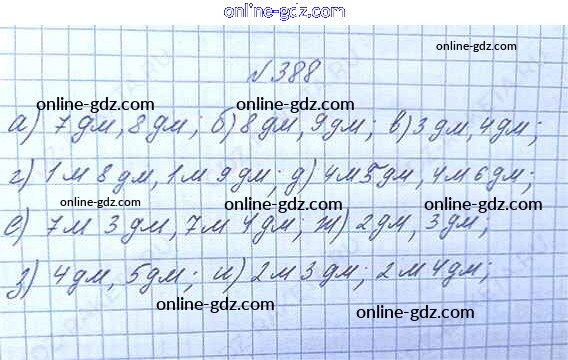 online-gdz.com
online-gdz.com
№388
online-gdz.com online-gdz.com
а) 7 дм, 8 дм; б) 8 дм, 9 дм; в) 3 дм, 4 дм;
online-gdz.com online-gdz.com
г) 1 м 8 дм, 1 м 9 дм; д) 4 м 5 дм, 4 м 6 дм;
online-gdz.com
е) 7 м 3 дм, 7 м 4 дм; ж) 2 дм, 3 дм;
online-gdz.com online-gdz.com
з) 4 дм, 5 дм; и) 2 м 3 дм; 2 м 4 дм;
online-gdz.com online-gdz.com
online-gdz.com